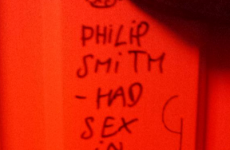 PHILIP
SMITH
- HAD
SEX
IN